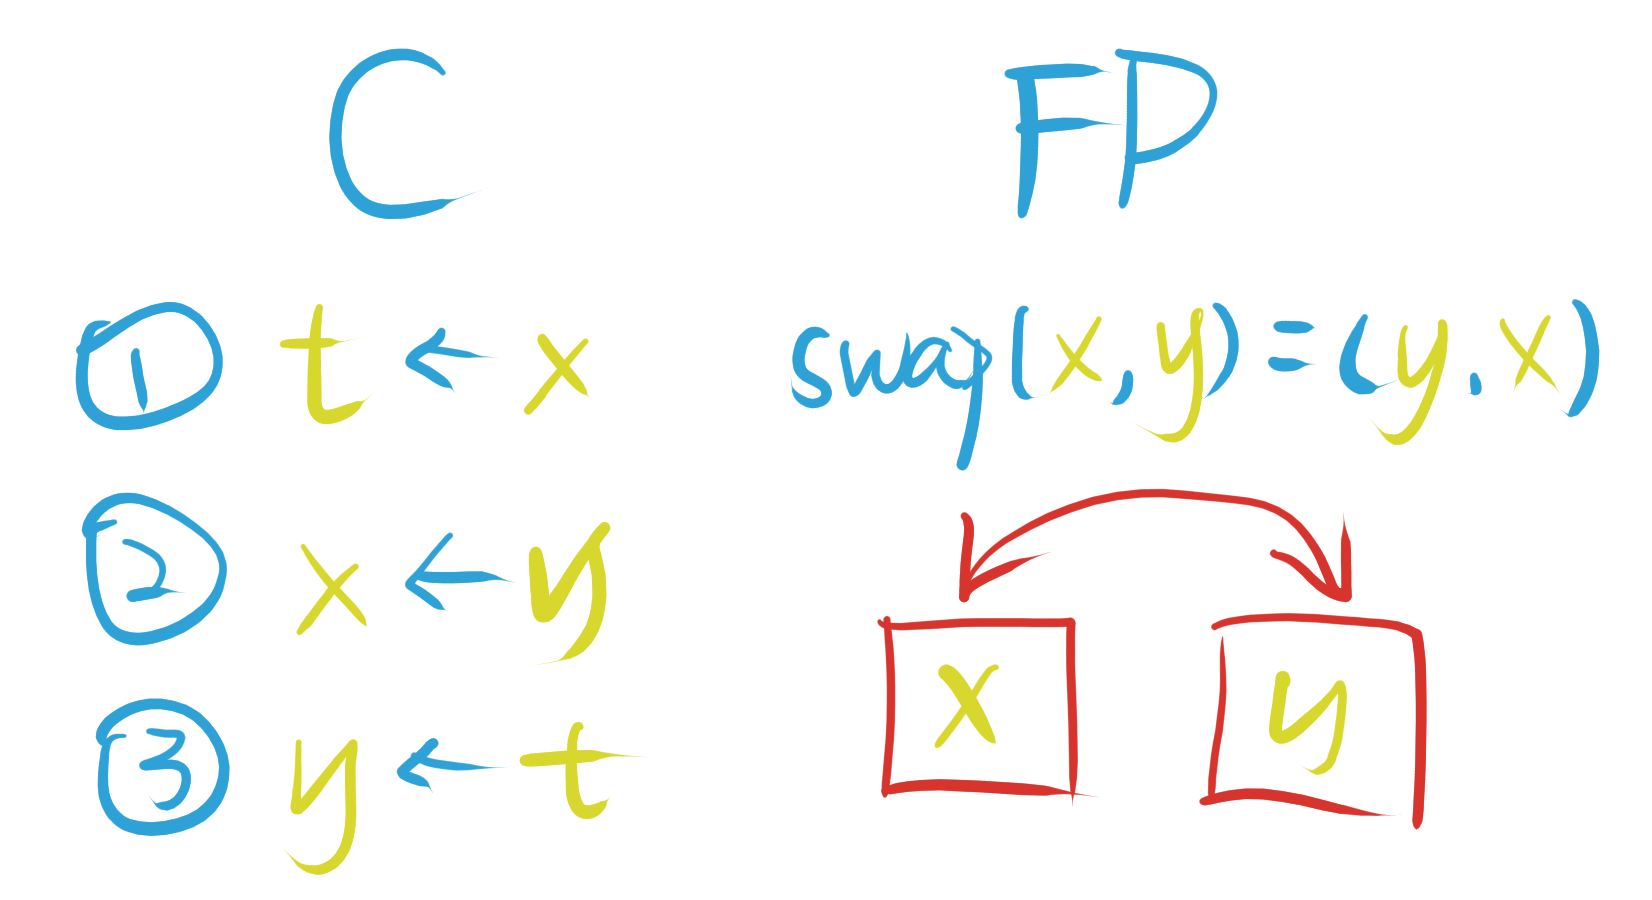 C
① t ← x
② x ← y
③ y ← t
FP
swap(x,y)=(y.x)
x y